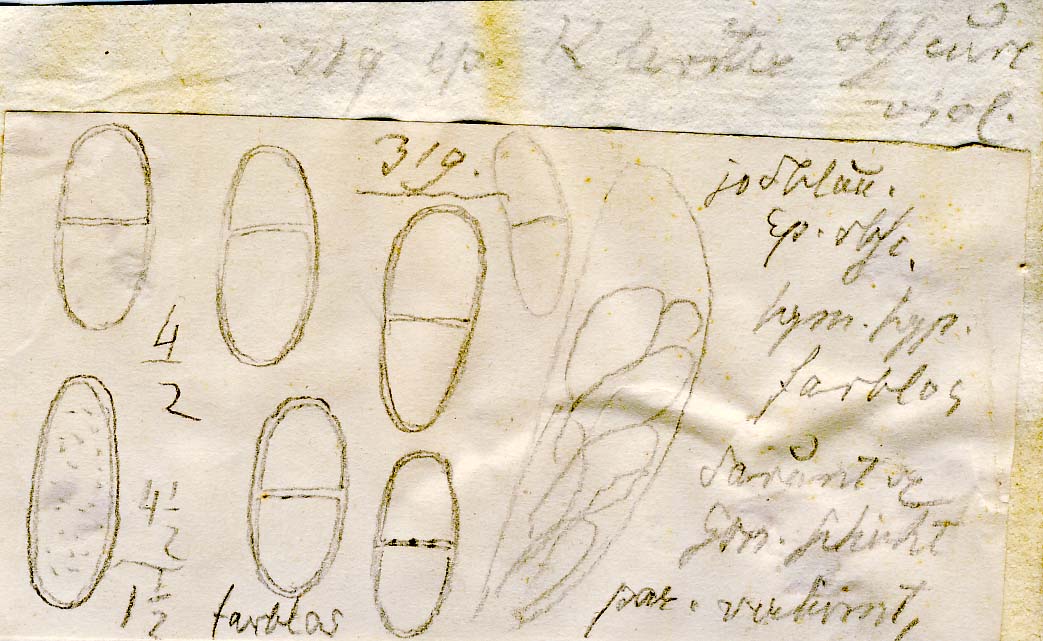 319 ep. K deutl. obscure
viol.
319.
jodblau.
Ep. obsc.
4
2
hym. hyp.
farblos
darunter
Gon. schicht
4 1/2
1 1/2
farblos
par. verleimt,